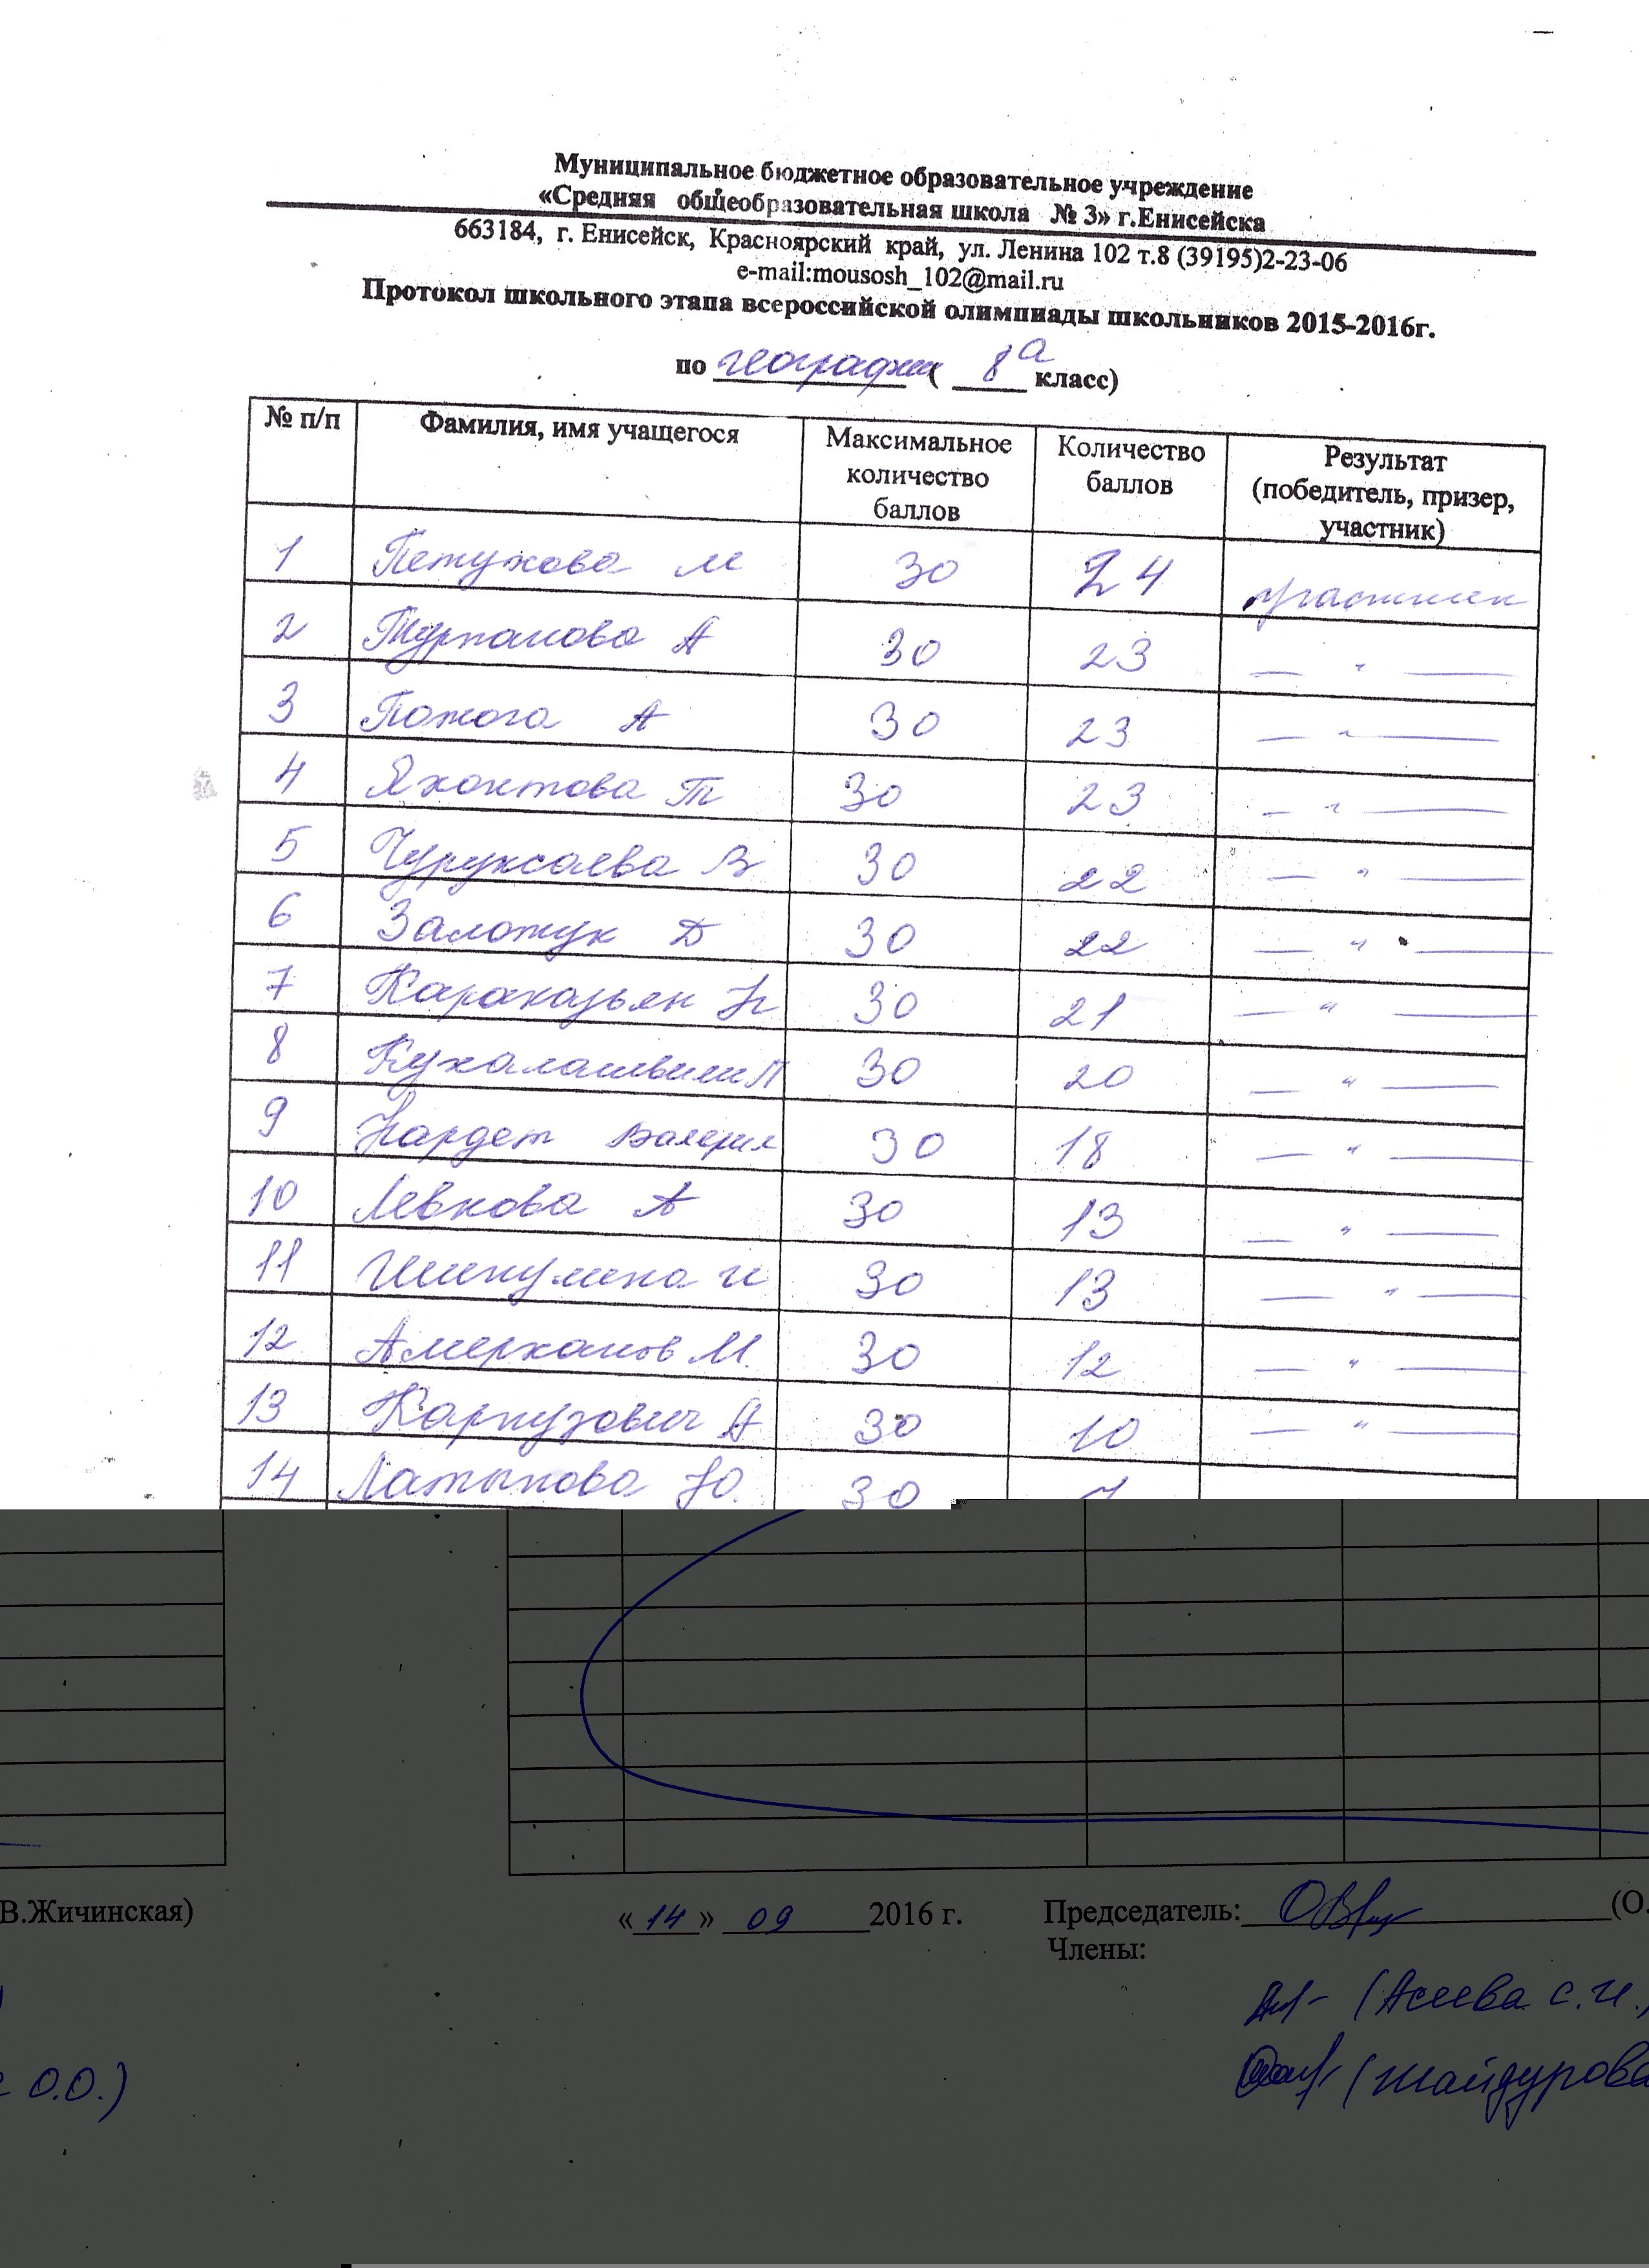 Муниципальное бюджетное образовательное учреждение
«Средняя общеобразовательная школа № 3» г.Енисейска
663184, г. Енисейск, Красноярский край, ул. Ленина 102 т.8 (39195)2-23-06
e-mail:mousosh_102@mail.ru
Протокол школьного этапа всероссийской олимпиады школьников 2015-2016г.
по географии ( 8а класс)
№ п/п Фамилия, имя учащегося Максимальное количество баллов Количество баллов Результат (победитель, призер, участник)
1 Петухова М 30 24 участник
2 Турпанова А 30 23 — " —
3 Пожога А 30 23 — " —
4 Яхонтова Т 30 23 — " —
5 Чуруксаева В 30 22 — " —
6 Заложук Д 30 22 — " —
7 Караказьян Н 30 21 — " —
8 Кухалашвили П 30 20 — " —
9 Нардет Валерия 30 18 — " —
10 Левкова А 30 13 — " —
11 Шишулина И 30 13 — " —
12 Амерханов М. 30 12 — " —
13 Карпузович А 30 10 — " —
14 Латыпова Ю. 30
В.Жичинская) «14» 09 2016 г. Председатель: (О.
Члены:
(Асеева С.И.)
О.О.) (Шайдурова